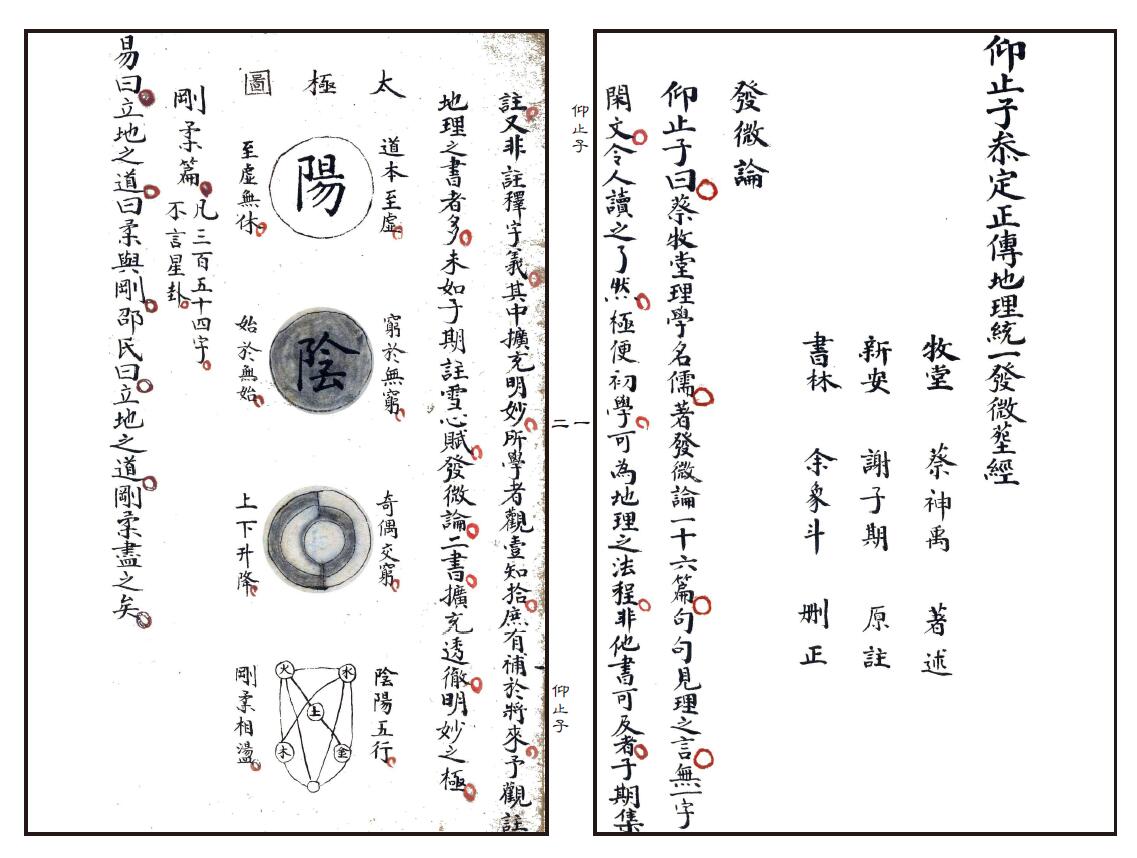 仰止子叅定正傳地理統一發微堊經
牧堂 蔡神禹 著述
新安 謝子期 原註
書林 余象斗 刪正
發微論
仰止子曰蔡牧堂理學名儒著發微論一十六篇句句見理之言無一字
閑文令人讀之了然極便初學可為地理之法程非他書可及者子期集
仰止子
二一
仰止子
註又非註釋字義其中擴充明妙所學者觀壹知拾庶有補於將來予觀註
地理之書者多未如子期註雪心賦發微論二書擴充透徹明妙之極
太極圖
道本至虛
至虛無休
陽
窮於無窮
始於無始
陰
奇偶交窮
上下升降
陰陽五行
剛柔相盪
水
火
土
金
木
剛柔篇
凡三百五十四字
不言星卦
易曰立地之道曰柔與剛邵民曰立地之道剛柔盡之矣